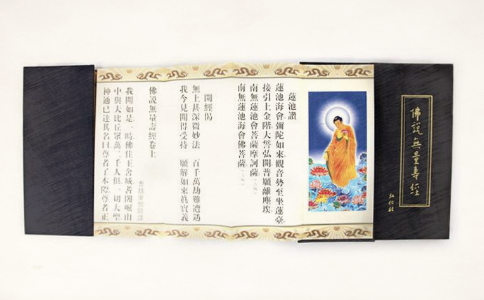 佛說無量壽經
蓮池讚
蓮池海會彌陀如來觀音勢至坐蓮臺
接引上金階大誓弘開普願離塵埃
南無蓮池海會菩薩摩訶薩
南無蓮池海會佛菩薩
開經偈
無上甚深微妙法 百千萬劫難遭遇
我今見聞得受持 願解如來真實義
佛說無量壽經卷上
我聞如是一時佛住王舍城耆闍崛山
中與大比丘眾萬二千人俱一切大聖
神通已達其名曰尊者了本際尊者正